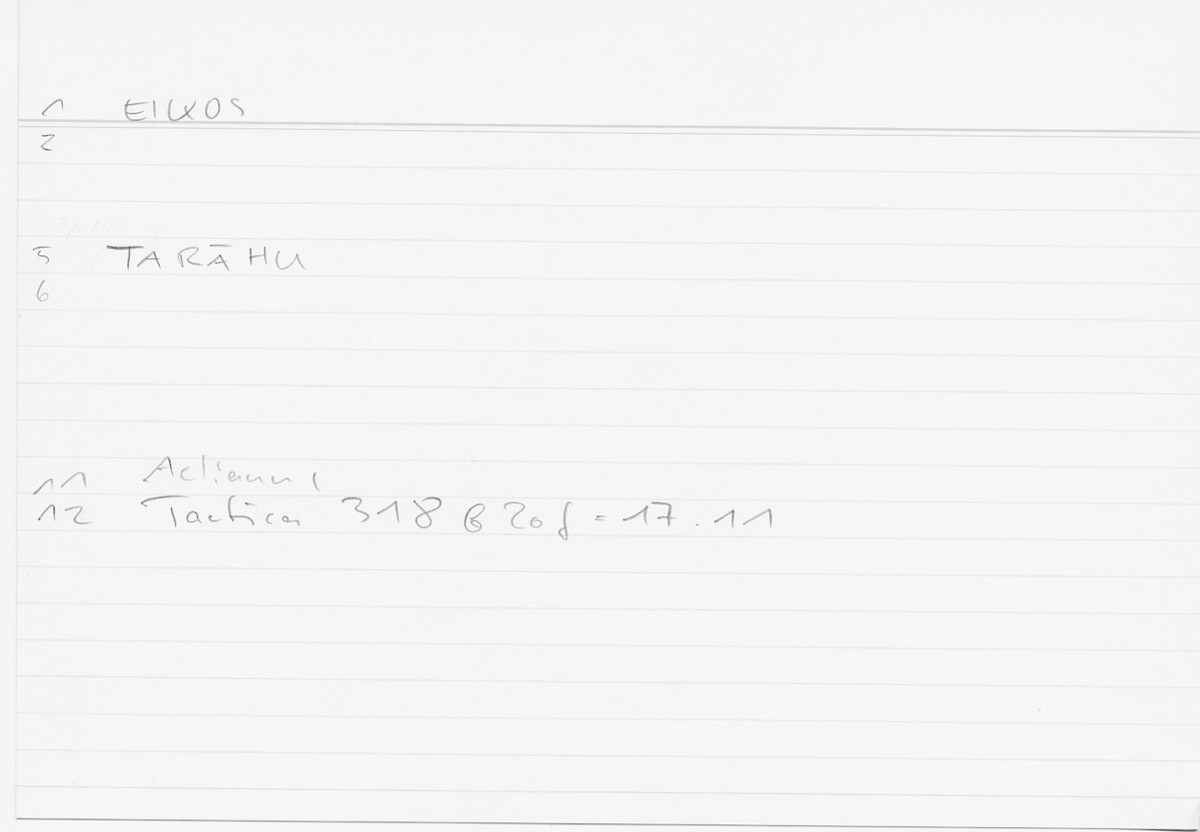 1 EIKOS
2
5 TARĀHU
6
11 Aelianus
12 Tactica 318 b 20 f = 17.11